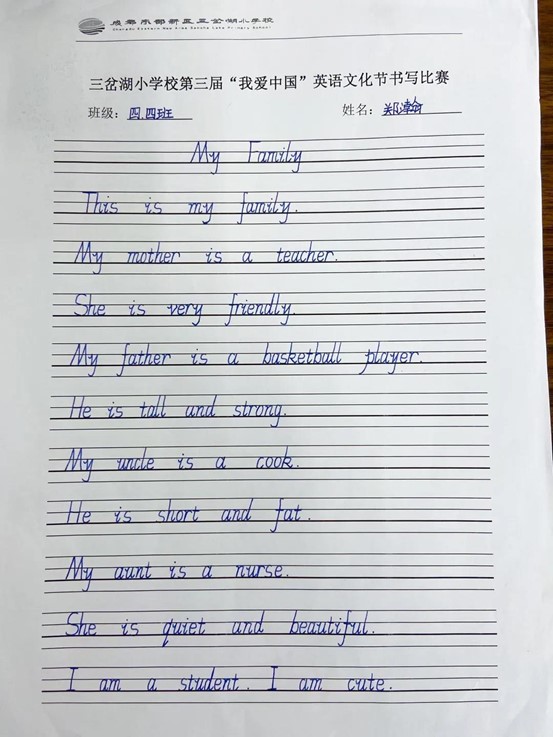 成都东部新区三岔湖小学校
Chengdu Eastern New Area Sancha Lake Primary School
三岔湖小学校第三届“我爱中国”英语文化节书写比赛
班级：四.四班 姓名：郑瀚
My Family
This is my family.
My mother is a teacher.
She is very friendly.
My father is a basketball player.
He is tall and strong.
My uncle is a cook.
He is short and fat.
My aunt is a nurse.
She is quiet and beautiful.
I am a student. I am cute.